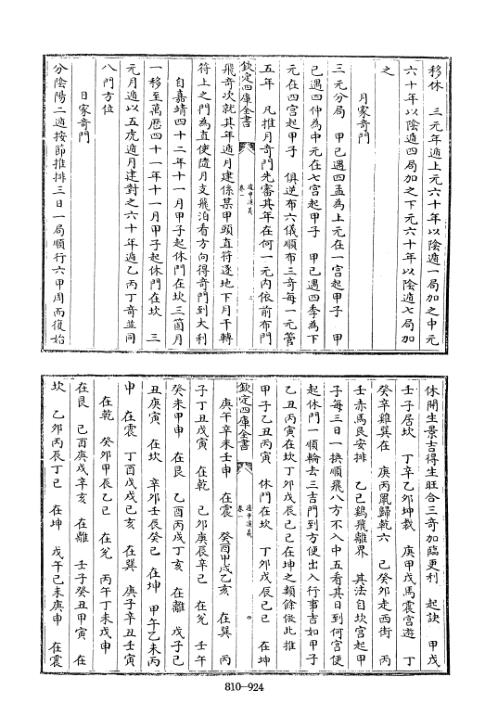 移休　三元年遁上元六十年以陰遁一局加之中元
六十年以陰遁四局加之下元六十年以陰遁七局加
之
月家奇門
三元分局　甲己遇四孟為上元在一宮起甲子　甲
己遇四仲為中元在七宮起甲子　甲己遇四季為下
元在四宮起甲子　俱逆布六儀順布三奇每一元管
五年　凡推月奇門先審其年在何一元内依前布門
欽定四庫全書
遁甲演義
卷一
飛奇次就其年遁月建係某甲頭直符逐地下月干轉
符上之門為直使隨月支飛泊看方向得奇門到大利
自嘉靖四十二年十一月甲子起休門在坎三箇月
一移至萬歷四十一年十一月甲子起休門在坎　三
元月遁以五虎遁月建對之六十年遁乙丙丁奇並同
八門方位
日家奇門
分陰陽二遁按節推排三日一局順行六甲周而復始
休開生景吉得生旺合三奇加臨更利　起訣　甲戊
壬子居坎　丁辛乙卯坤載　庚甲戊馬震宮遊　丁
癸辛雞巽在　庚丙鼠歸乾六　己癸卯走西街　丙
壬赤馬艮安排　乙己鷄飛離界　其法自坎宮起甲
子每三日一換順飛八方不入中五看其日到何宮便
起休門一順輪去三吉門到方便出入行事吉如甲子
乙丑丙寅在坎丁卯戊辰己巳在坤之類餘倣此推
甲子乙丑丙寅　休門在坎　丁卯戊辰己巳　在坤
欽定四庫全書
遁甲演義
卷一
庚午辛未壬申　在震　癸酉甲戌乙亥　在巽　丙
子丁丑戊寅　在乾　己卯庚辰辛巳　在兌　壬午
癸未甲申　在艮　乙酉丙戌丁亥　在離　戊子己
丑庚寅　在坎　辛卯壬辰癸巳　在坤　甲午乙未丙
申　在震　丁酉戊戌己亥　在巽　庚子辛丑壬寅
在乾　癸卯甲辰乙巳　在兌　丙午丁未戊申
在艮　己酉庚戌辛亥　在離　壬子癸丑甲寅　在
坎　乙卯丙辰丁巳　在坤　戊午己未庚申　在震
810-924